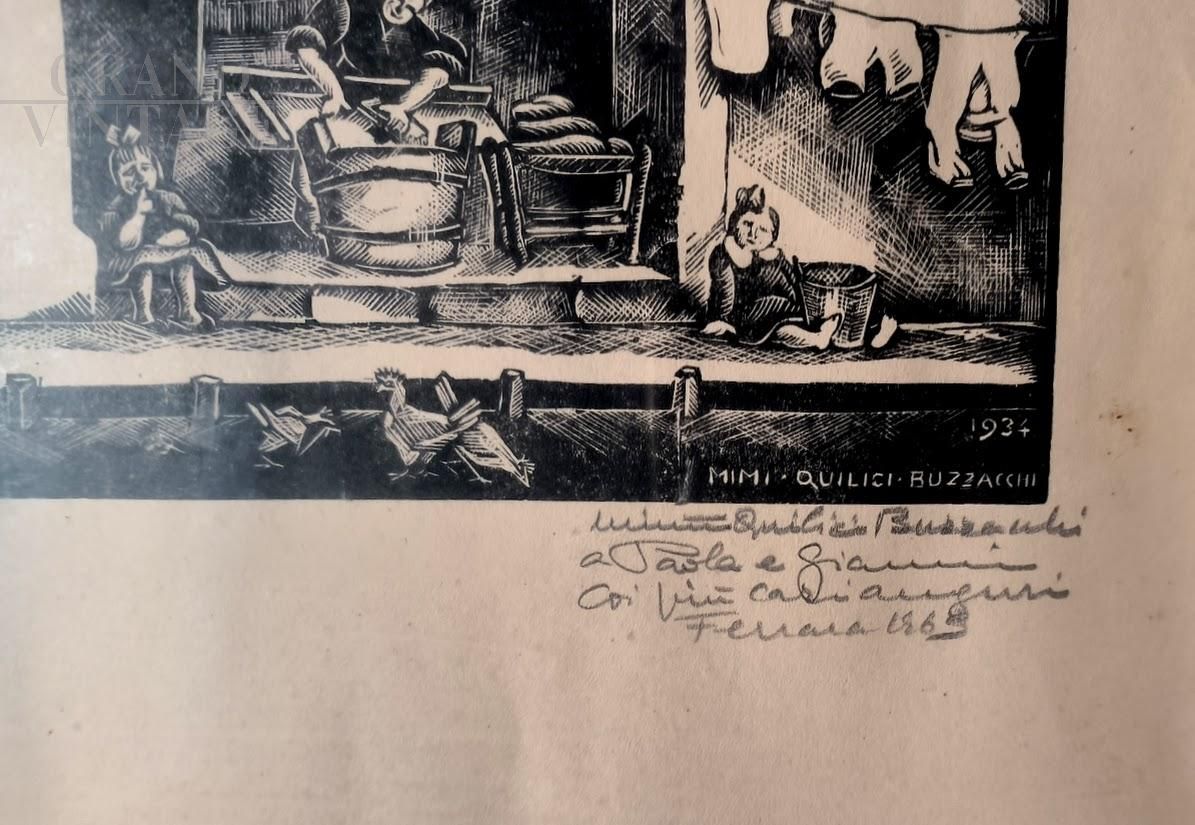 GRAND
VINTA
1934
MIMI · QUILICI · BUZZACCHI
Mimì Quilici Buzzacchi
a Paola e Gianni
coi più cari auguri
Ferrara